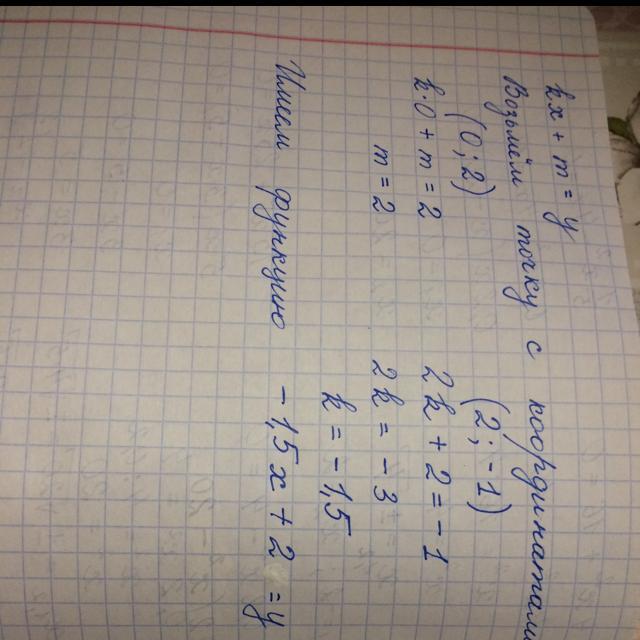 kx + m = y
Возьмём точку с координатами
(0; 2) (2; -1)
k·0 + m = 2 2k + 2 = -1
m = 2 2k = -3
k = -1,5
Имеем функцию -1,5x + 2 = y